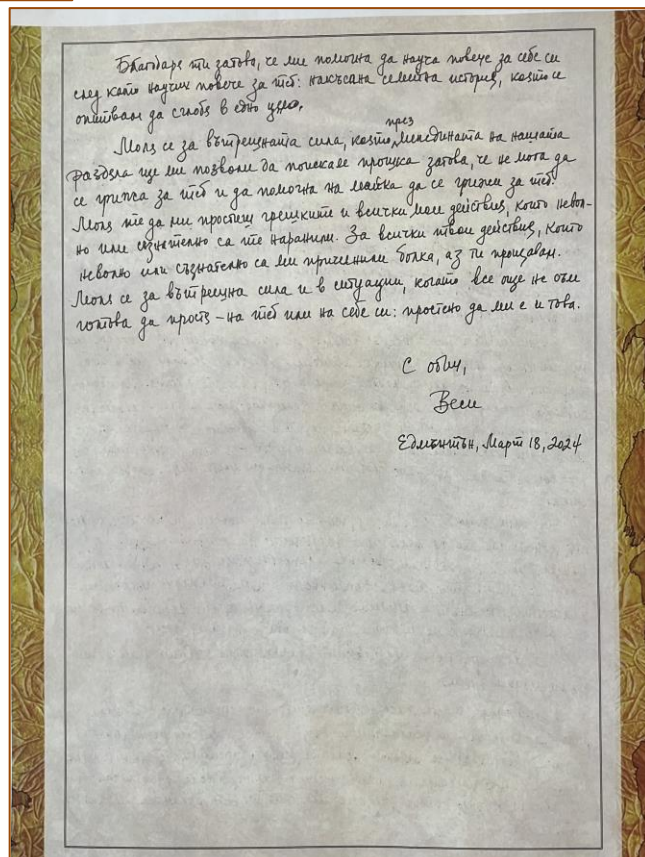 Благодаря ти затова, че ми помогна да науча повече за себе си
след като научих повече за теб: накъсана семейна история, която се
опитвам да сглобя в едно цяло.
Моля се за вътрешната сила, която през медицината на нашата
раздяла ще ми позволи да поискам прошка затова, че не мога да
се грижа за теб и да помогна на майка да се грижи за теб.
Моля те да ми простиш грешките и всички мои действия, които невол-
но или съзнателно са те наранили. За всички твои действия, които
неволно или съзнателно са ми причинили болка, аз ти прощавам.
Моля се за вътрешна сила и в ситуации, когато все още не съм
готова да простя – на теб или на себе си: простено да ми е и това.
С обич,
Веси
Едмънтън, Март 18, 2024